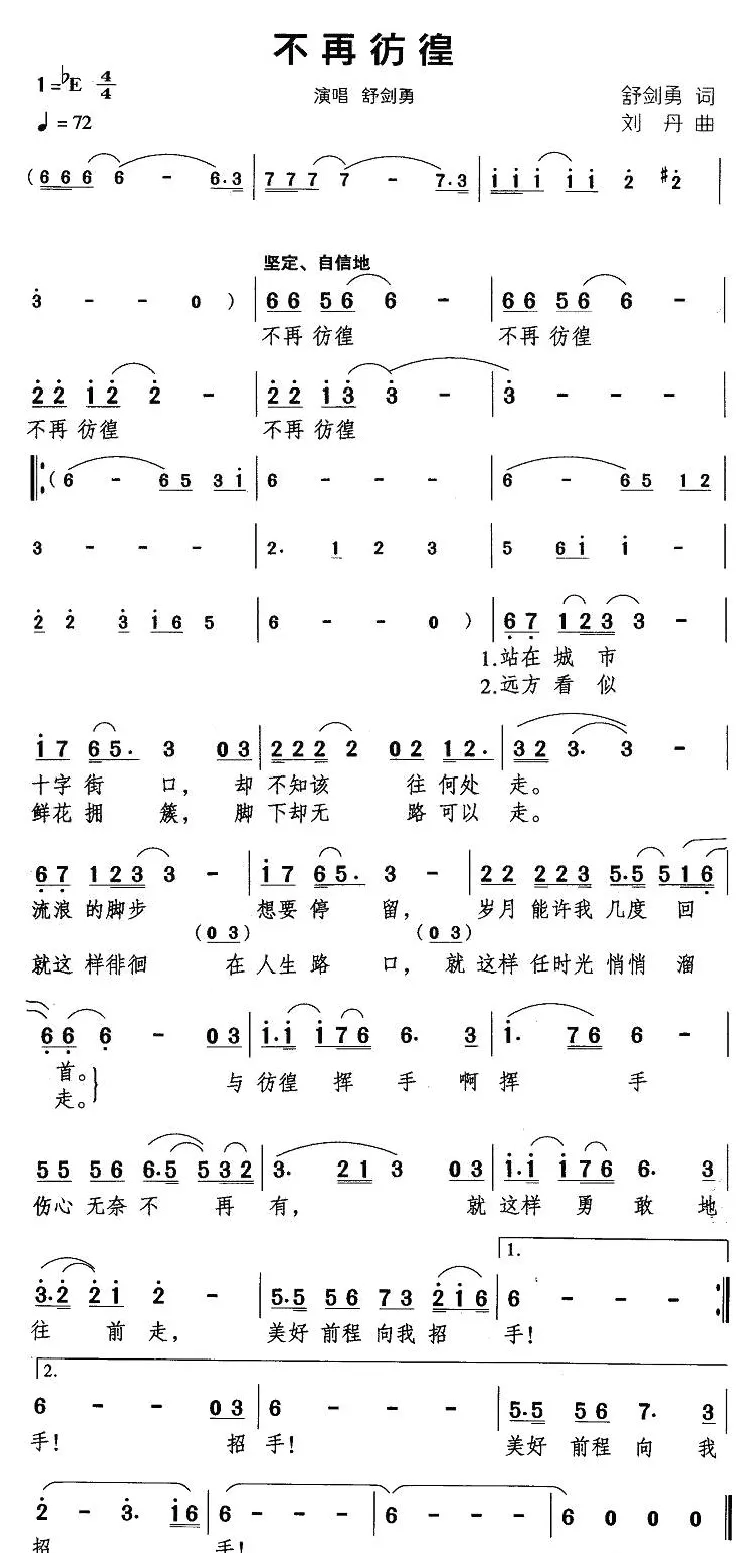 不再彷徨
1=♭E 4/4
演唱 舒剑勇
舒剑勇 词
♩=72
刘 丹 曲
(6 6 6 6 - 6.3 | 7 7 7 7 - 7.3 | i i i i i 2̇ #2̇ |
坚定、自信地
3̇ - - 0 ) | 6 6 5 6 6 - | 6 6 5 6 6 - |
不再 彷徨 不再 彷徨
2̇ 2̇ i 2̇ 2̇ - | 2̇ 2̇ i 3̇ 3̇ - | 3̇ - - - |
不再 彷徨 不再 彷徨
‖: (6 - 6 5 3 i | 6 - - - | 6 - 6 5 1 2 |
3 - - - | 2. 1 2 3 | 5 6 i i - |
2̇ 2̇ 3̇ i 6 5 | 6 - - 0 ) | 6̣ 7̣ 1 2 3 3 - |
1.站在 城 市
2.远方 看 似
i 7 6 5. 3 0 3 | 2 2 2 2 2 0 2 1 2. | 3 2 3. 3 - |
十字 街 口， 却 不知该 往 何处 走。
鲜花 拥 簇， 脚 下却无 路 可以 走。
6̣ 7̣ 1 2 3 3 - | i 7 6 5. 3 - | 2 2 2 2 3 5.5 5 1 6̣ |
流浪 的脚步 想要 停 留， 岁月 能许我 几度 回
(0 3) (0 3)
就这 样徘徊 在 人生 路 口， 就 这样 任时光 悄悄 溜
6̣ 6̣ 6̣ - 0 3 | i.i i 7 6 6. 3 | i. 7 6 6 - |
首。 与彷徨 挥 手 啊 挥 手
走。
5 5 5 6 6.5 5 3 2 | 3. 2 1 3 0 3 | i.i i 7 6 6. 3 |
伤心 无奈 不 再 有， 就 这样 勇 敢 地
1.
3̇.2̇ 2̇ i 2̇ - | 5.5 5 6 7 3 2̇ i 6 | 6 - - - :‖
往 前 走， 美好 前程 向我 招 手!
2.
6 - - 0 3 | 6 - - - | 5.5 5 6 7. 3 |
手! 招 手! 美好 前程 向 我
2̇ - 3̇. i 6 | 6 - - - | 6 - - - | 6 0 0 0 ‖
招 手!